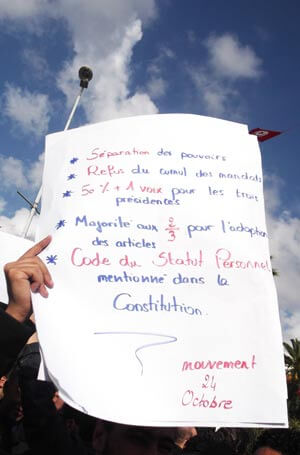 * Séparation des pouvoirs
* Refus du cumul des mandats
* 50% + 1 voix pour les trois
présidences
* Majorité aux 2/3 pour l'adoption
des articles
* Code du Statut Personnel
mentionné dans la
Constitution.
mouvement
24
Octobre